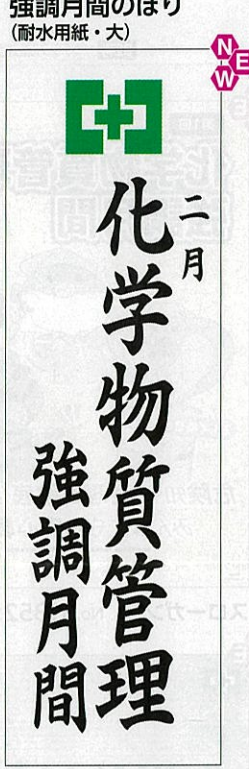 強調月間のぼり
（耐水用紙・大）
NEW
二月
化学物質管理
強調月間